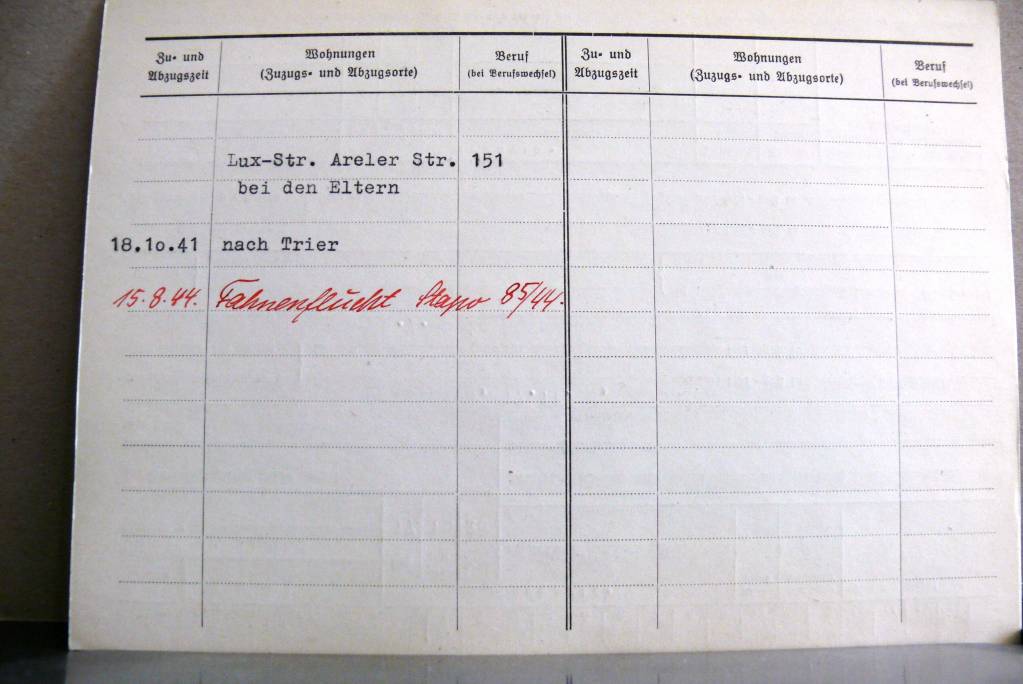 Zu- und Abzugszeit
Wohnungen
(Zuzugs- und Abzugsorte)
Beruf
(bei Berufswechsel)
Zu- und Abzugszeit
Wohnungen
(Zuzugs- und Abzugsorte)
Beruf
(bei Berufswechsel)
Lux-Str. Areler Str. 151
bei den Eltern
18.10.41 nach Trier
15.8.44. Fahnenflucht Stapo 85/44.